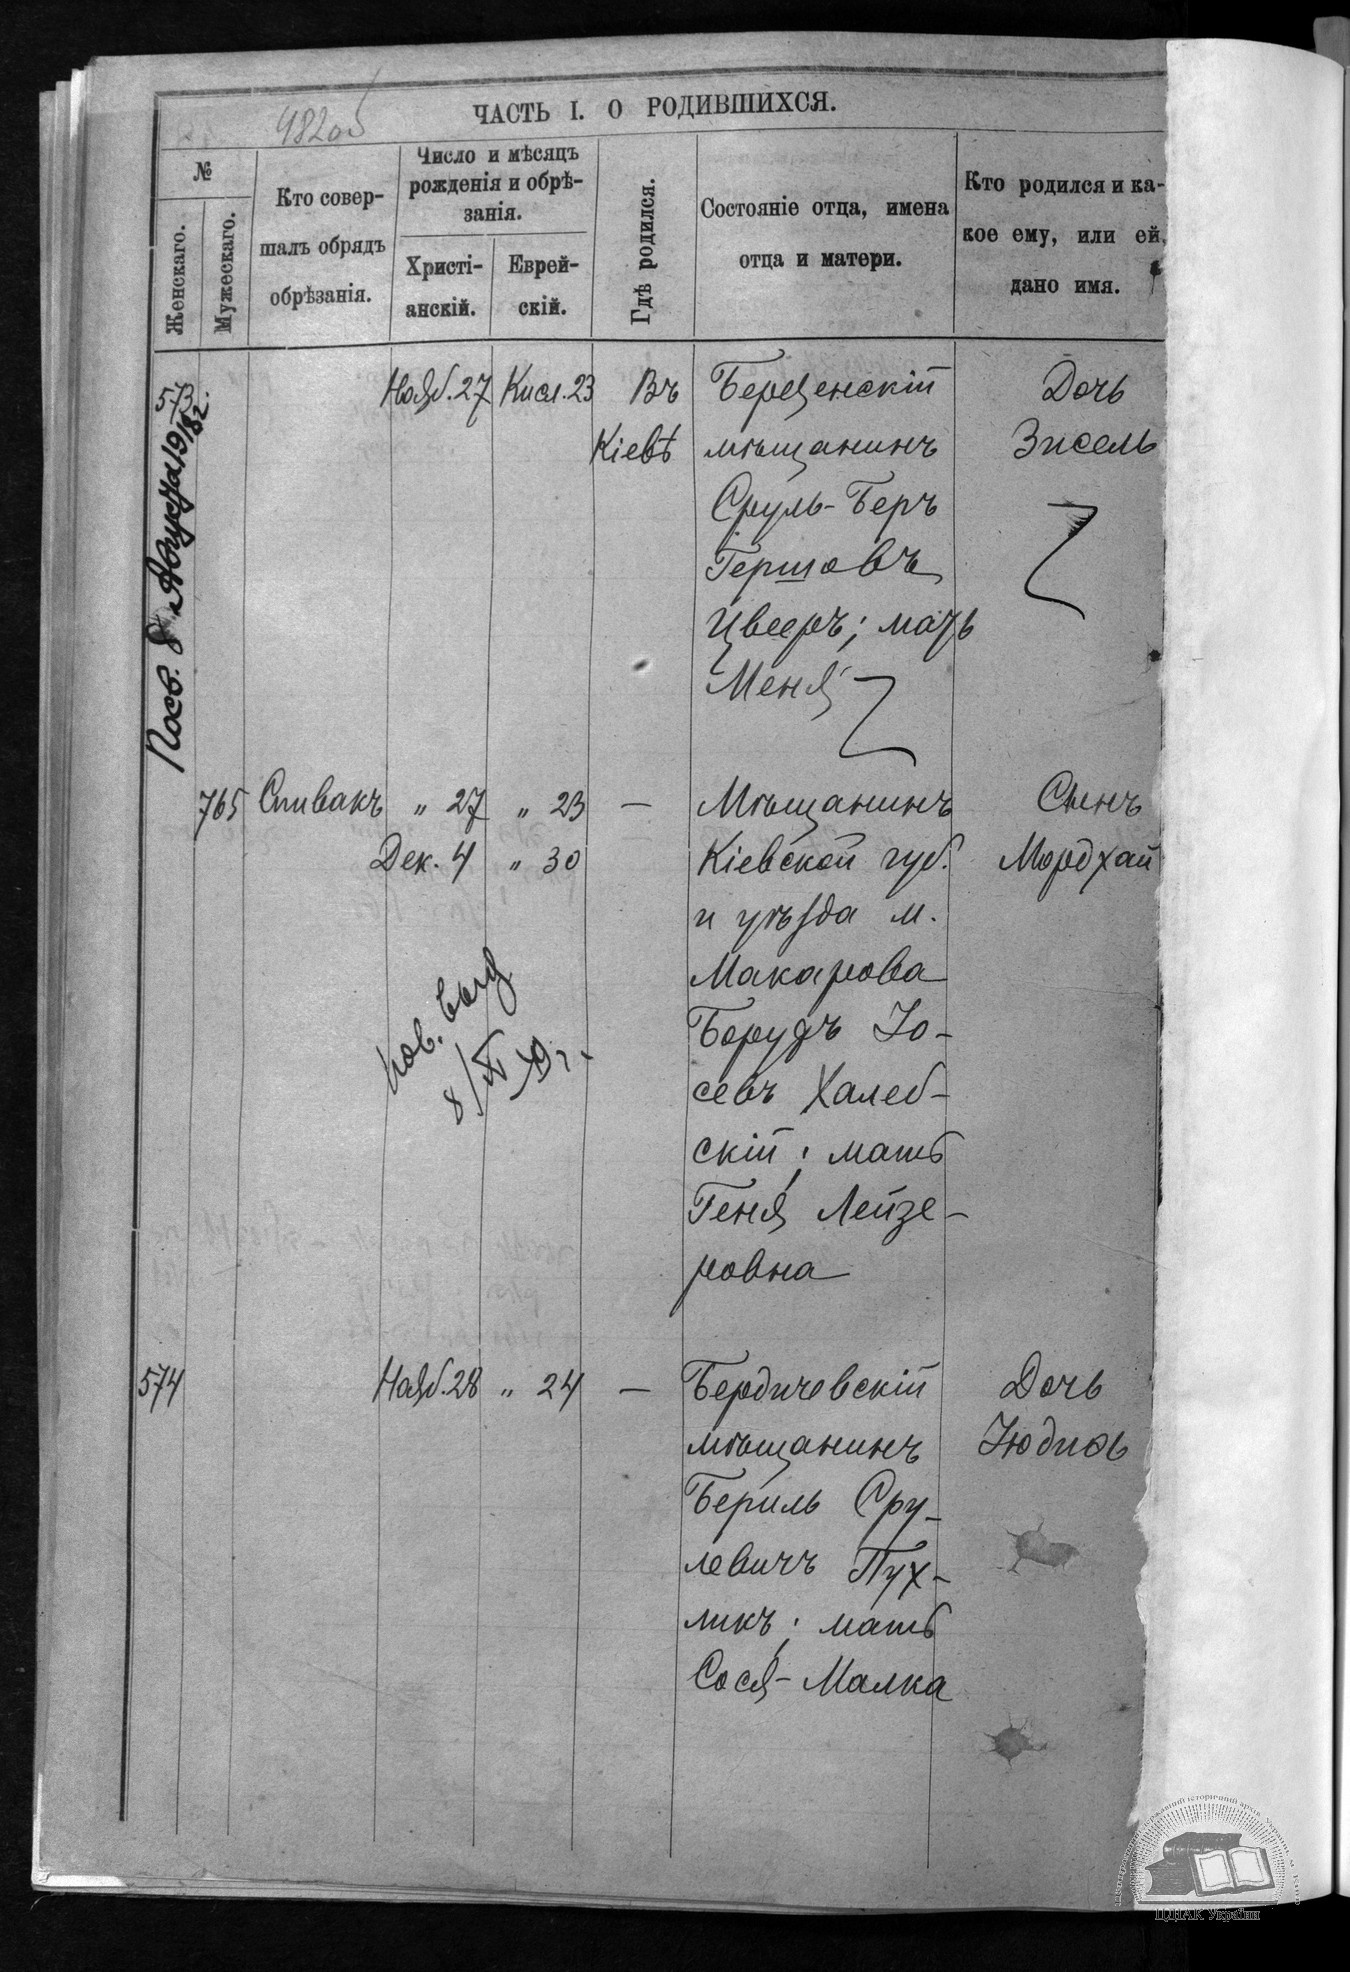 482об
ЧАСТЬ I. О РОДИВШИХСЯ.
№
Женскаго.
Мужескаго.
Кто совер-
шалъ обрядъ
обрѣзанія.
Число и мѣсяцъ
рожденія и обрѣ-
занія.
Христі-
анскій.
Еврей-
скій.
Гдѣ родился.
Состояніе отца, имена
отца и матери.
Кто родился и ка-
кое ему, или ей,
дано имя.
573
Нояб. 27 Кисл. 23 Въ
Кіевѣ
мѣщанинъ
Сруль-Беръ
Гершовъ
Цвееръ; мать
Меня
Дочь
Зисель
8 Августа 19
765 Спивакъ " 27 " 23 —
Дек. 4 " 30
Мѣщанинъ
Кіевской губ.
и уѣзда м.
Макарова
Борухъ Іо-
севъ Халеб-
скій; мать
Геня Лейзе-
ровна
Сынъ
Мордхай
пов. выд
574 Нояб. 28 " 24 —
Бердичевскій
мѣщанинъ
Бериль Сру-
левичъ Пух-
ликъ; мать
Сося-Малка
Дочь
Юдись
ЦДІАК України